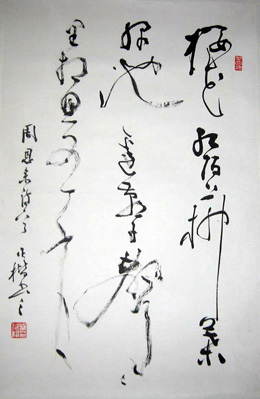 樱花红陌上柳葉
绿池邊燕子聲々
里相思又一年
周恩来诗